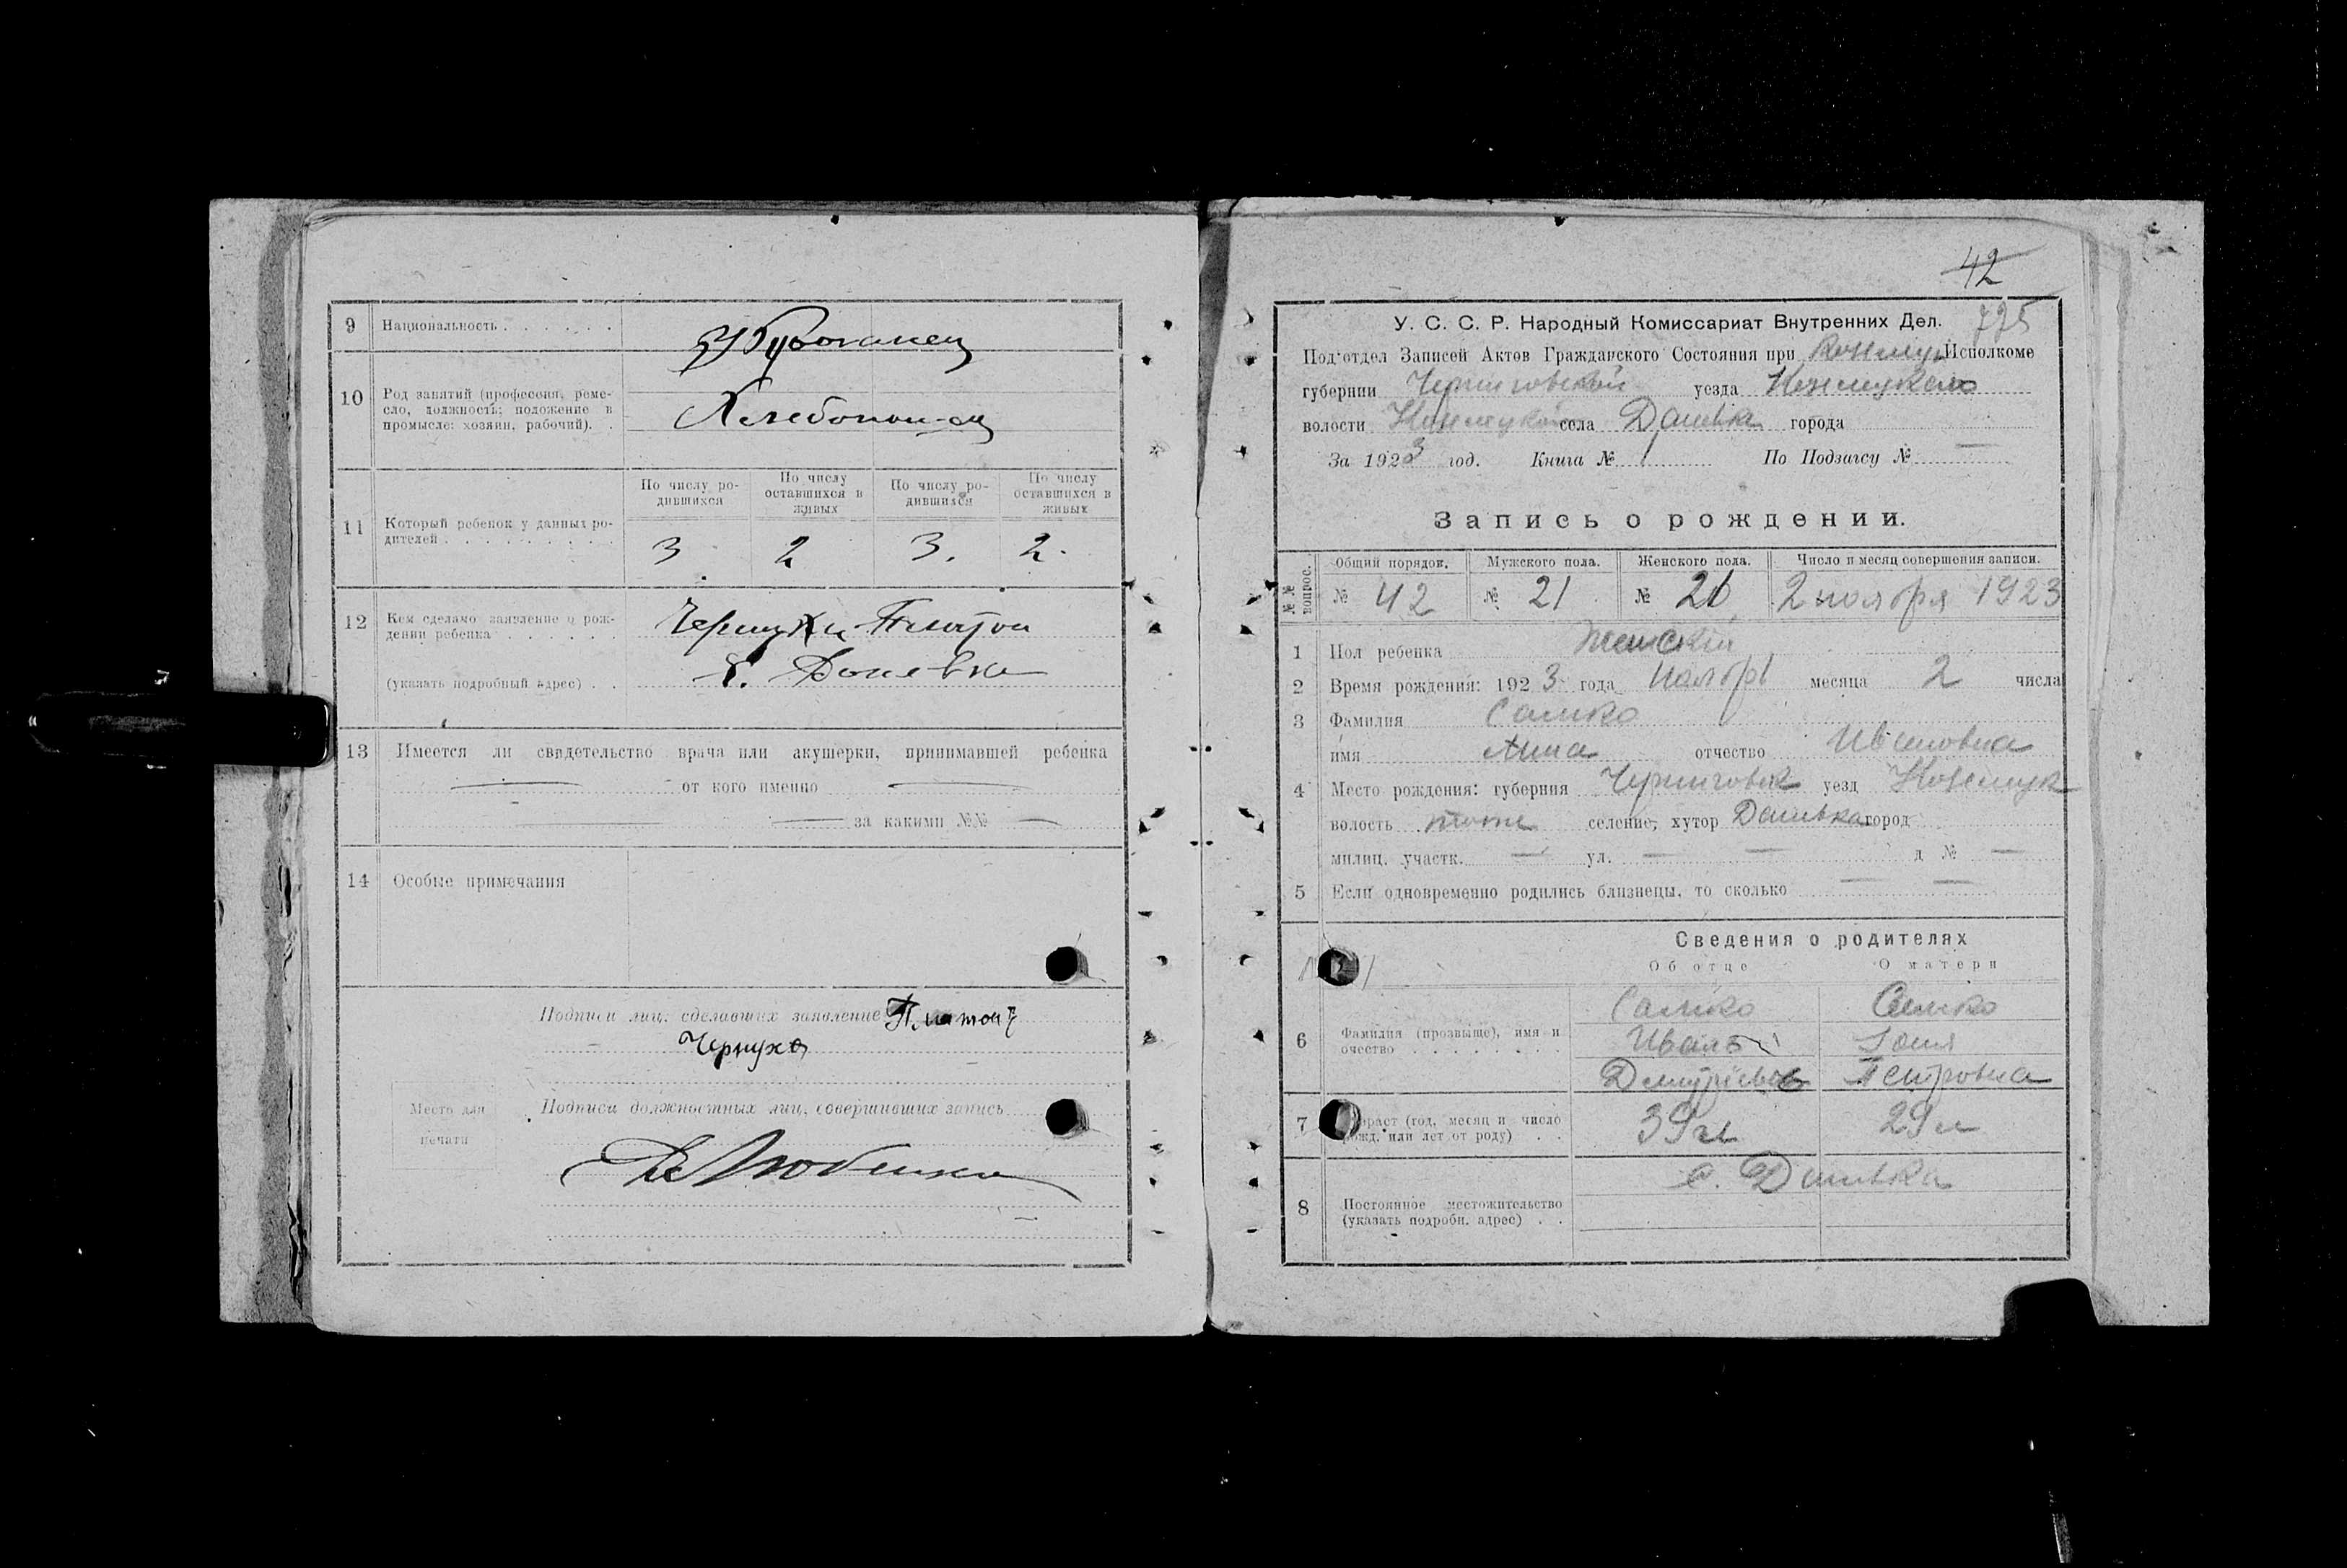 9 Национальность
10 Род занятий (профессия, реме-
сло, должность; положение в
промысле: хозяин, рабочий).
Хлебопаш-ец
11 Который ребенок у данных ро-
дителей
По числу ро-
дившихся
По числу
оставшихся в
живых
По числу ро-
дившихся
По числу
оставшихся в
живых
3 2 3. 2.
12 Кем сделамо заявление о рож-
дении ребенка
Платон
(указать подробный адрес)
с. Даневка
13 Имеется ли свидетельство врача или акушерки, принимавшей ребенка
от кого именно
за какими №№
14 Особые примечания
Подписи лиц, сделавших заявление Платон
Чернуха
Место для
печати
Подписи должностных лиц, совершивших запись
42
725
У. С. С. Р. Народный Комиссариат Внутренних Дел.
Подотдел Записей Актов Гражданского Состояния при Исполкоме
губернии Черниговской уезда Козелецкого
волости Козелецкой села Даневка города
За 1923 год. Книга № 1 По Подзагсу № —
Запись о рождении.
№№ вопрос.
Общий порядок. Мужского пола. Женского пола. Число и месяц совершения записи.
№ 42 № 21 № 21 2 ноября 1923
1 Пол ребенка Женский
2 Время рождения: 1923 года Ноябрь месяца 2 числа
3 Фамилия Самко
имя Анна отчество Ивановна
4 Место рождения: губерния Черниговск уезд Козелецк
волость тоже селение, хутор Даневка город
милиц. участк. — ул. — — д № —
5 Если одновременно родились близнецы, то сколько — —
Сведения о родителях
Об отце О матери
6 Фамилия (прозвыще), имя и
очество
Самко Самко
Иван
Дмитриевич Петровна
7 Возраст (год, месяц и число
рожд. или лет от роду)
39 л 29 л
8 Постоянное местожительство
(указать подробн. адрес)
с. Даневка